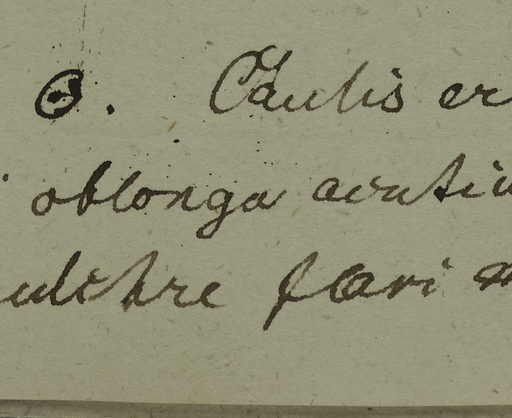 ⊙. Caulis er
oblonga acuti
ulchre flavi